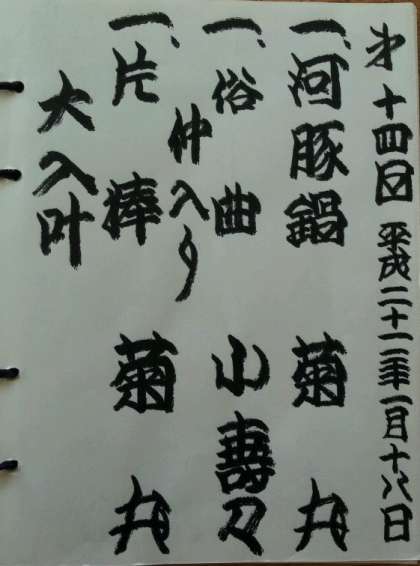 第十四回 平成二十二年一月十八日
一、河豚鍋 菊丸
一、俗曲 小壽々
仲入り
一、片棒 菊丸
大入叶